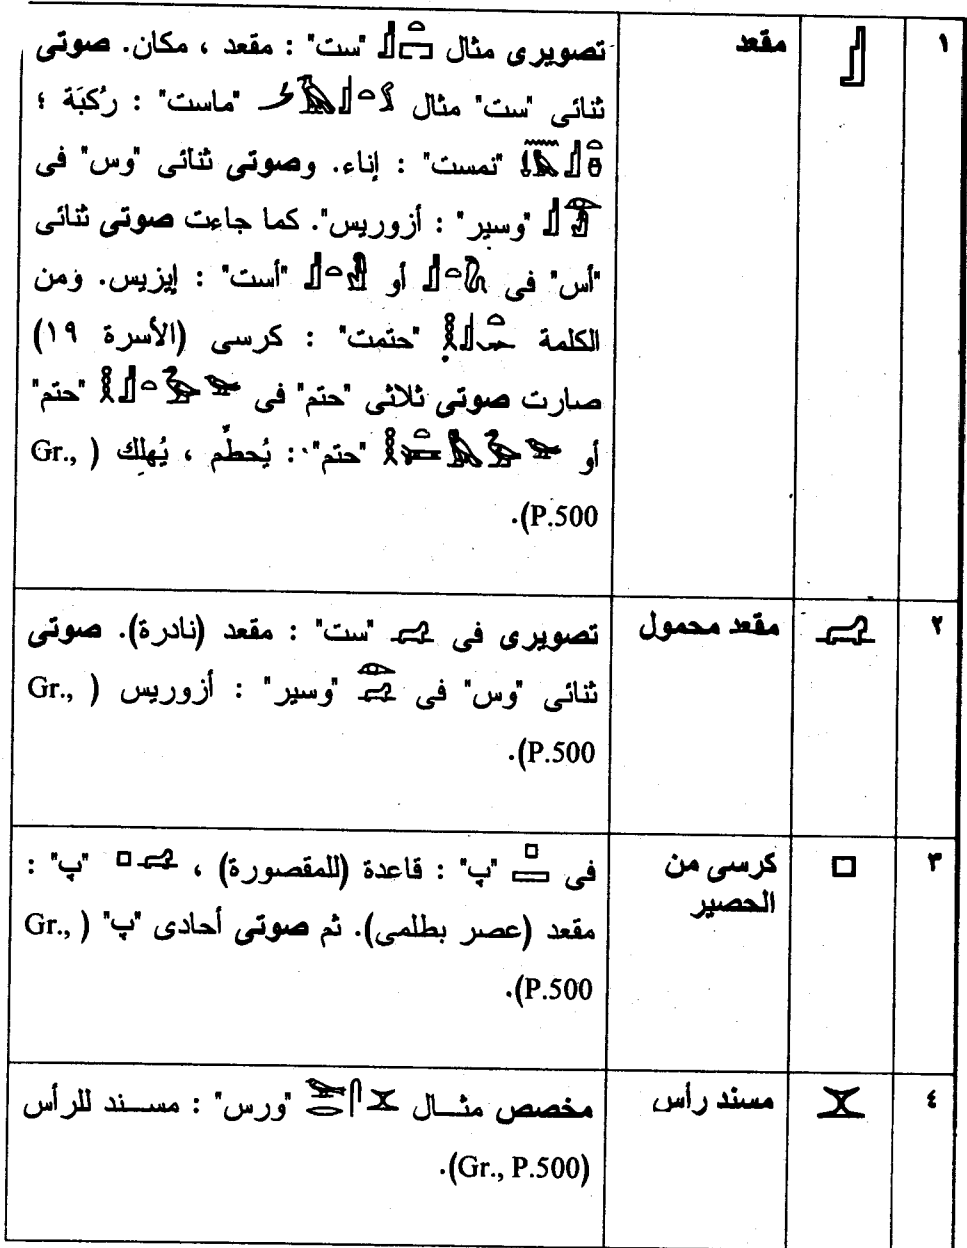 ١ 𓊨 مقعد تصويرى مثال 𓊨𓏏𓉐 "ست" : مقعد ، مكان. صوتى
ثنائى "ست" مثال "ماست" : رُكبَة ؛
"نمست" : إناء. وصوتى ثنائى "وس" فى
"وسير" : أزوريس". كما جاءت صوتى ثنائى
"أس" فى أو "أست" : إيزيس. ومن
الكلمة "حتمت" : كرسى (الأسرة ١٩)
صارت صوتى ثلاثى "حتم" فى "حتم"
أو "حتم" : يُحطِّم ، يُهلِك (Gr.,
P.500).
٢ 𓊩 مقعد محمول تصويرى فى 𓊩 "ست" : مقعد (نادرة). صوتى
ثنائى "وس" فى 𓊩𓁹 "وسير" : أزوريس (Gr.,
P.500).
٣ 𓊪 كرسى من فى "پ" : قاعدة (للمقصورة) ، 𓊪𓊩 "پ" :
الحصير مقعد (عصر بطلمى). ثم صوتى أحادى "پ" (Gr.,
P.500).
٤ 𓊫 مسند رأس مخصص مثال 𓅨𓂋𓋴𓊫 "ورس" : مسند للرأس
(Gr., P.500).